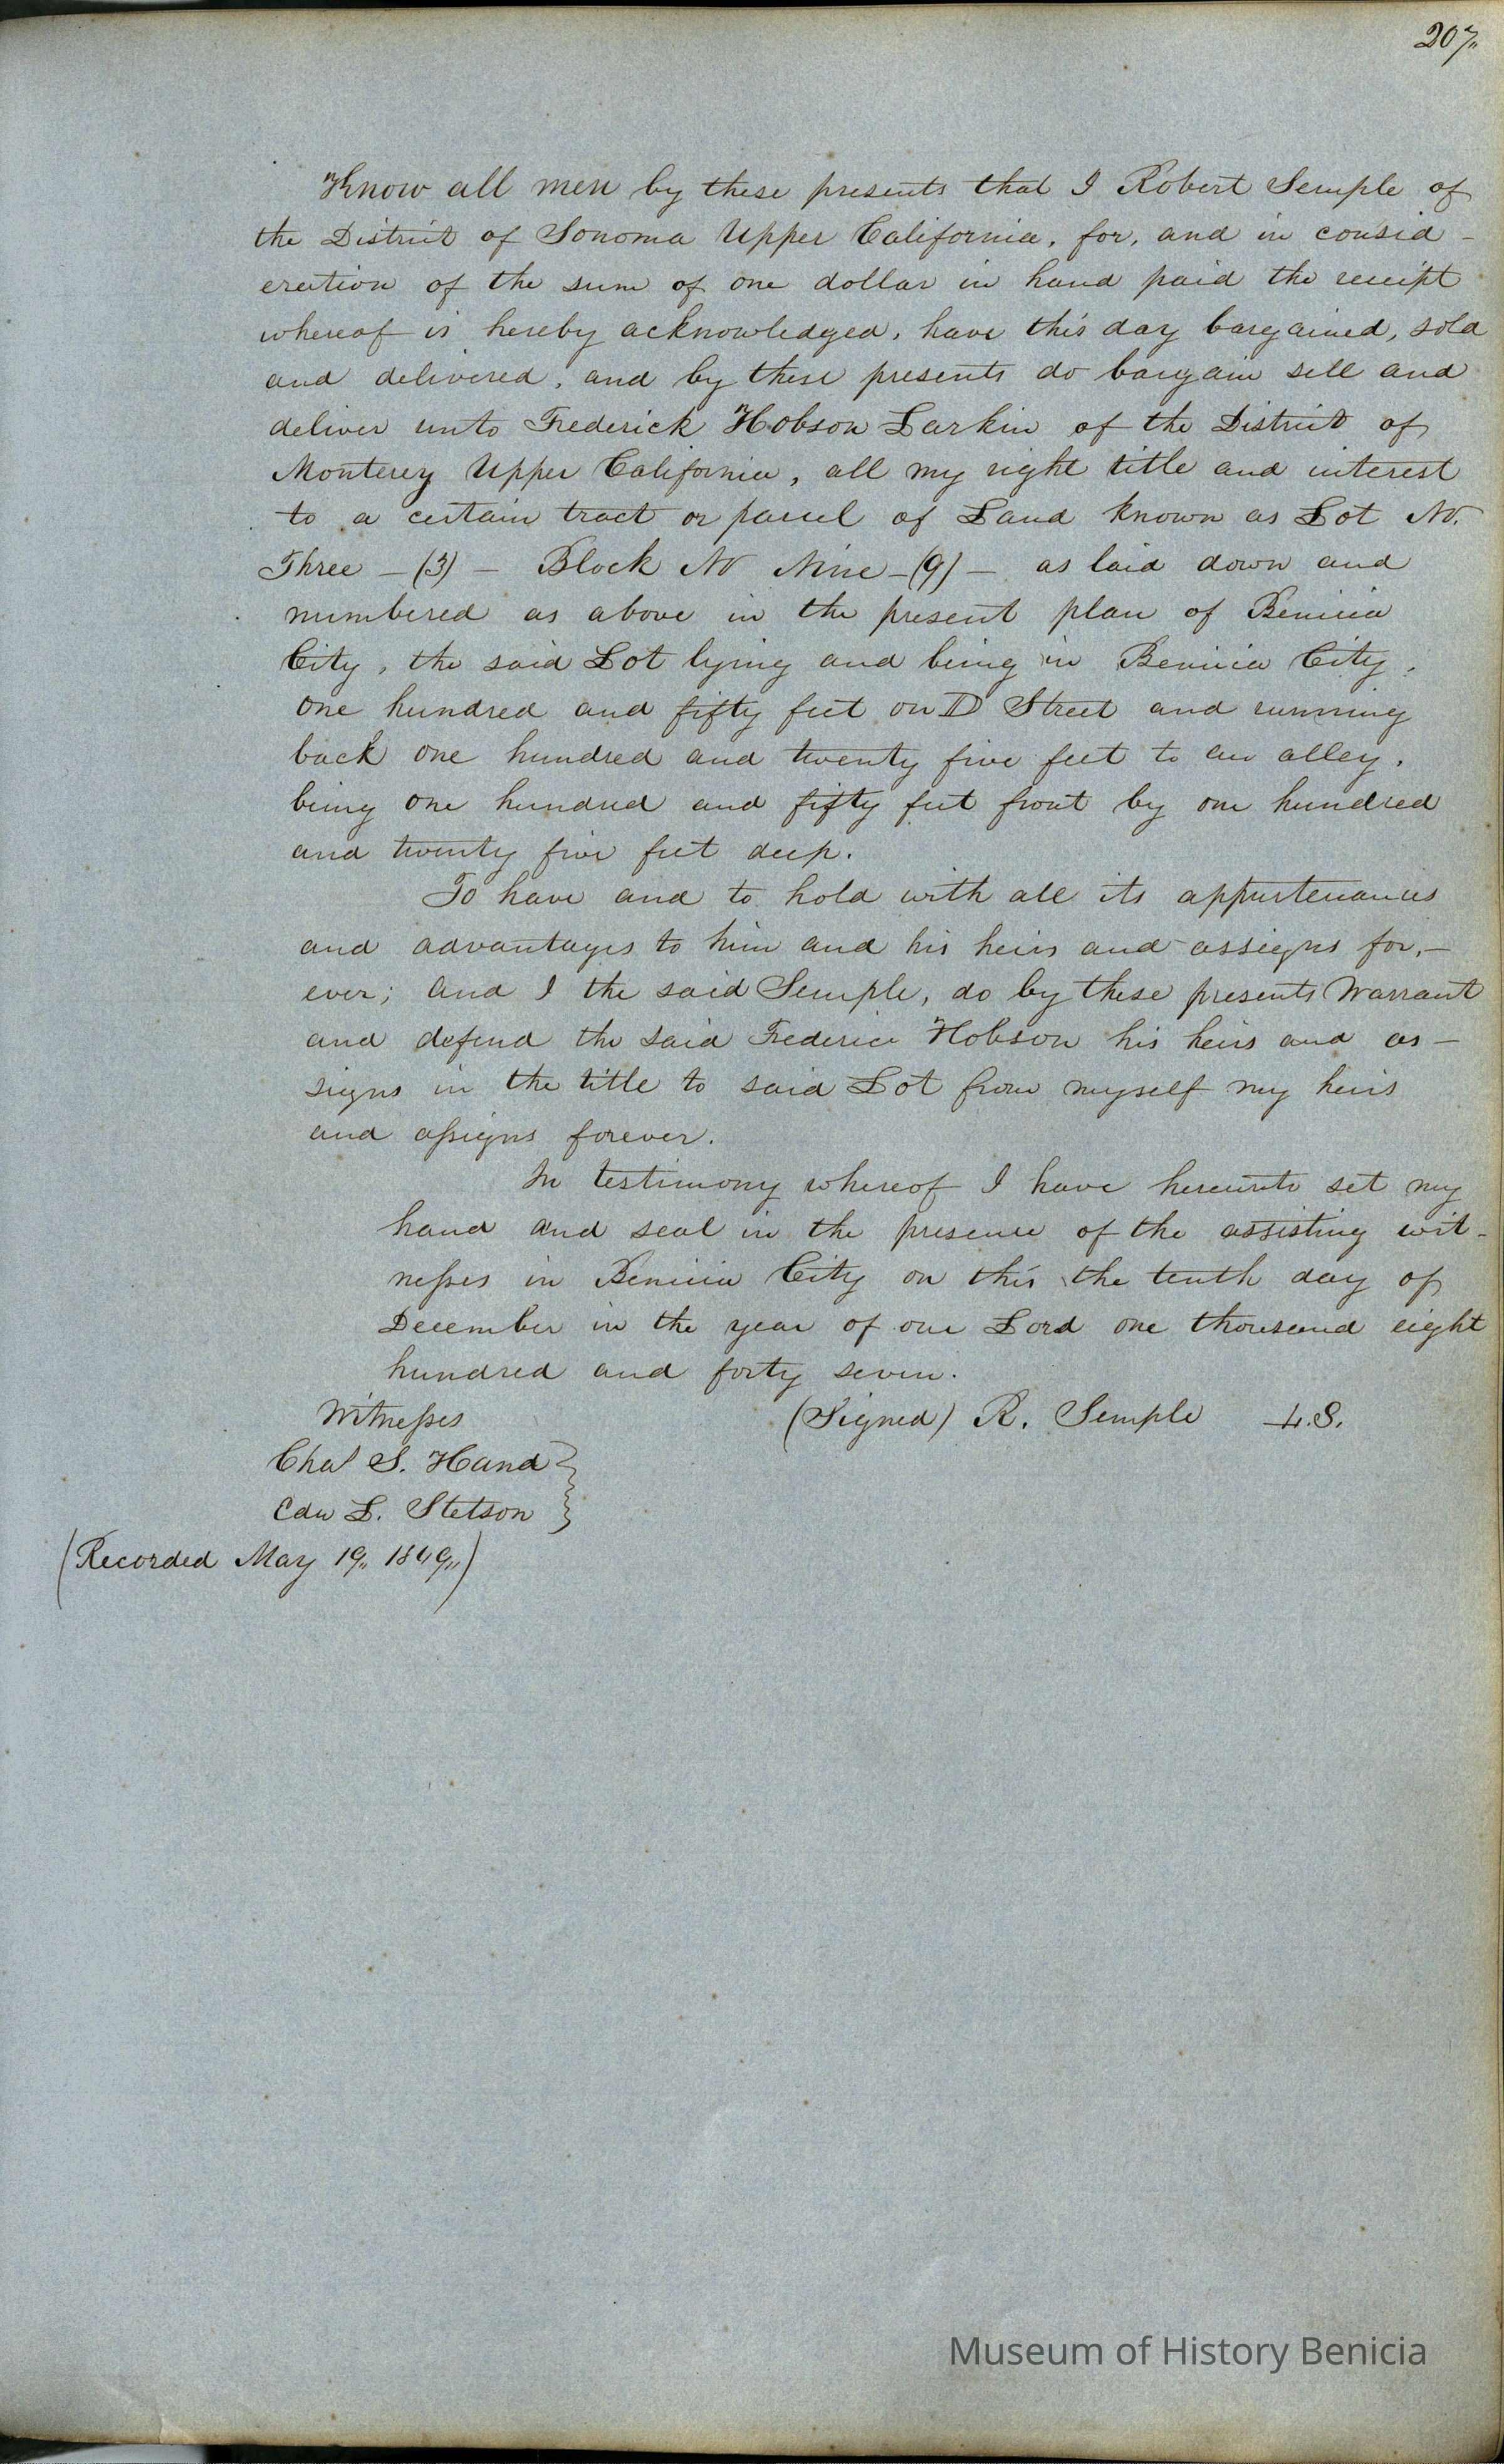 207,,
Know all men by these presents that I Robert Semple of
the District of Sonoma Upper California, for, and in consid-
eration of the sum of one dollar in hand paid the receipt
whereof is hereby acknowledged, have this day bargained, sold
and delivered, and by these presents do bargain sell and
deliver unto Frederick Hobson Larkin of the District of
Monterey Upper California, all my right title and interest
to a certain tract or parcel of Land known as Lot No.
Three - (3) - Block No Nine - (9) - as laid down and
numbered as above in the present plan of Benicia
City, the said Lot lying and being in Benicia City,
one hundred and fifty feet on D Street and running
back one hundred and twenty five feet to an alley,
being one hundred and fifty feet front by one hundred
and twenty five feet deep.
To have and to hold with all its appurtenances
and advantages to him and his heirs and assigns for,-
ever; and I the said Semple, do by these presents Warrant
and defend the said Frederic Hobson his heirs and as-
signs in the title to said Lot from myself my heirs
and assigns forever.
In testimony whereof I have hereunto set my
hand and seal in the presence of the assisting wit-
nesses in Benicia City on this the tenth day of
December in the year of our Lord one thousand eight
hundred and forty seven.
Witnesses (Signed) R. Semple L.S.
Chas S. Hand
Edw L. Stetson
(Recorded May 19,, 1849,,)
Museum of History Benicia